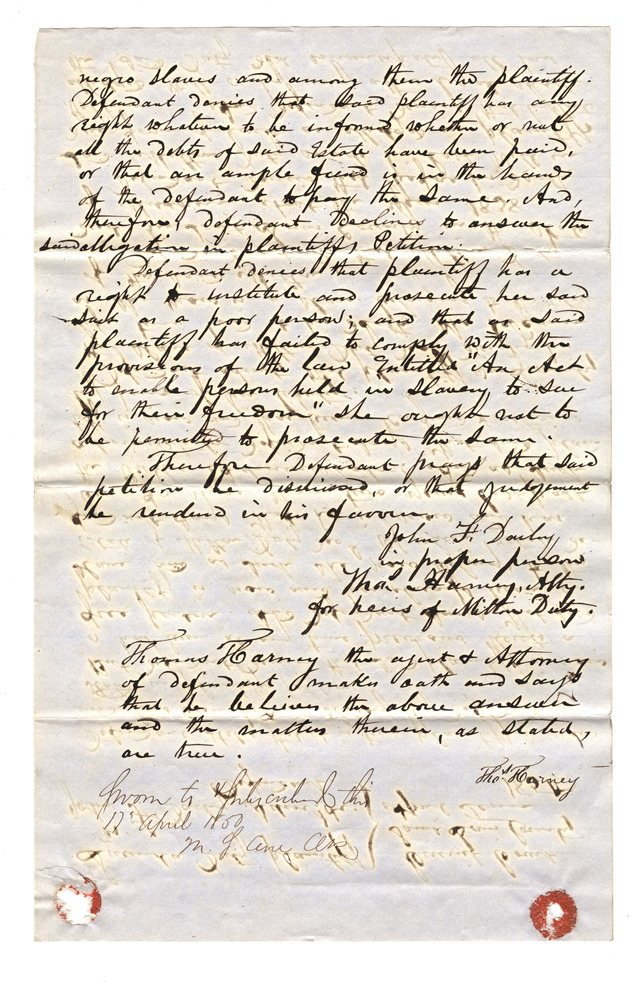 negro slaves and among them the plaintiff.
Defendant denies that said plaintiff has any
right whatever to be informed whether or not
all the debts of said Estate have been paid,
or that an ample fund is in the hands
of the defendant to pay the same. And,
therefore, defendant Declines to answer the
said allegation in plaintiffs Petition.
Defendant denies that plaintiff has a
right to institute and prosecute her said
suit as a poor person; and that as said
plaintiff has failed to comply with the
provisions of the law Entitled "An Act
to enable persons held in slavery to sue
for their freedom" she ought not to
be permitted to prosecute the same.
Therefore Defendant prays that said
petition be dismissed, or that judgement
be rendered in his favour.
John F. Darby
in proper person
Thos. Harney, Atty.
for heirs of Milton Duty.
Thomas Harney the agent & Attorney
of defendant makes oath and says
that he believes the above answer
and the matters therein, as stated,
are true.
Thos. Harney
Sworn to & subscribed this
April